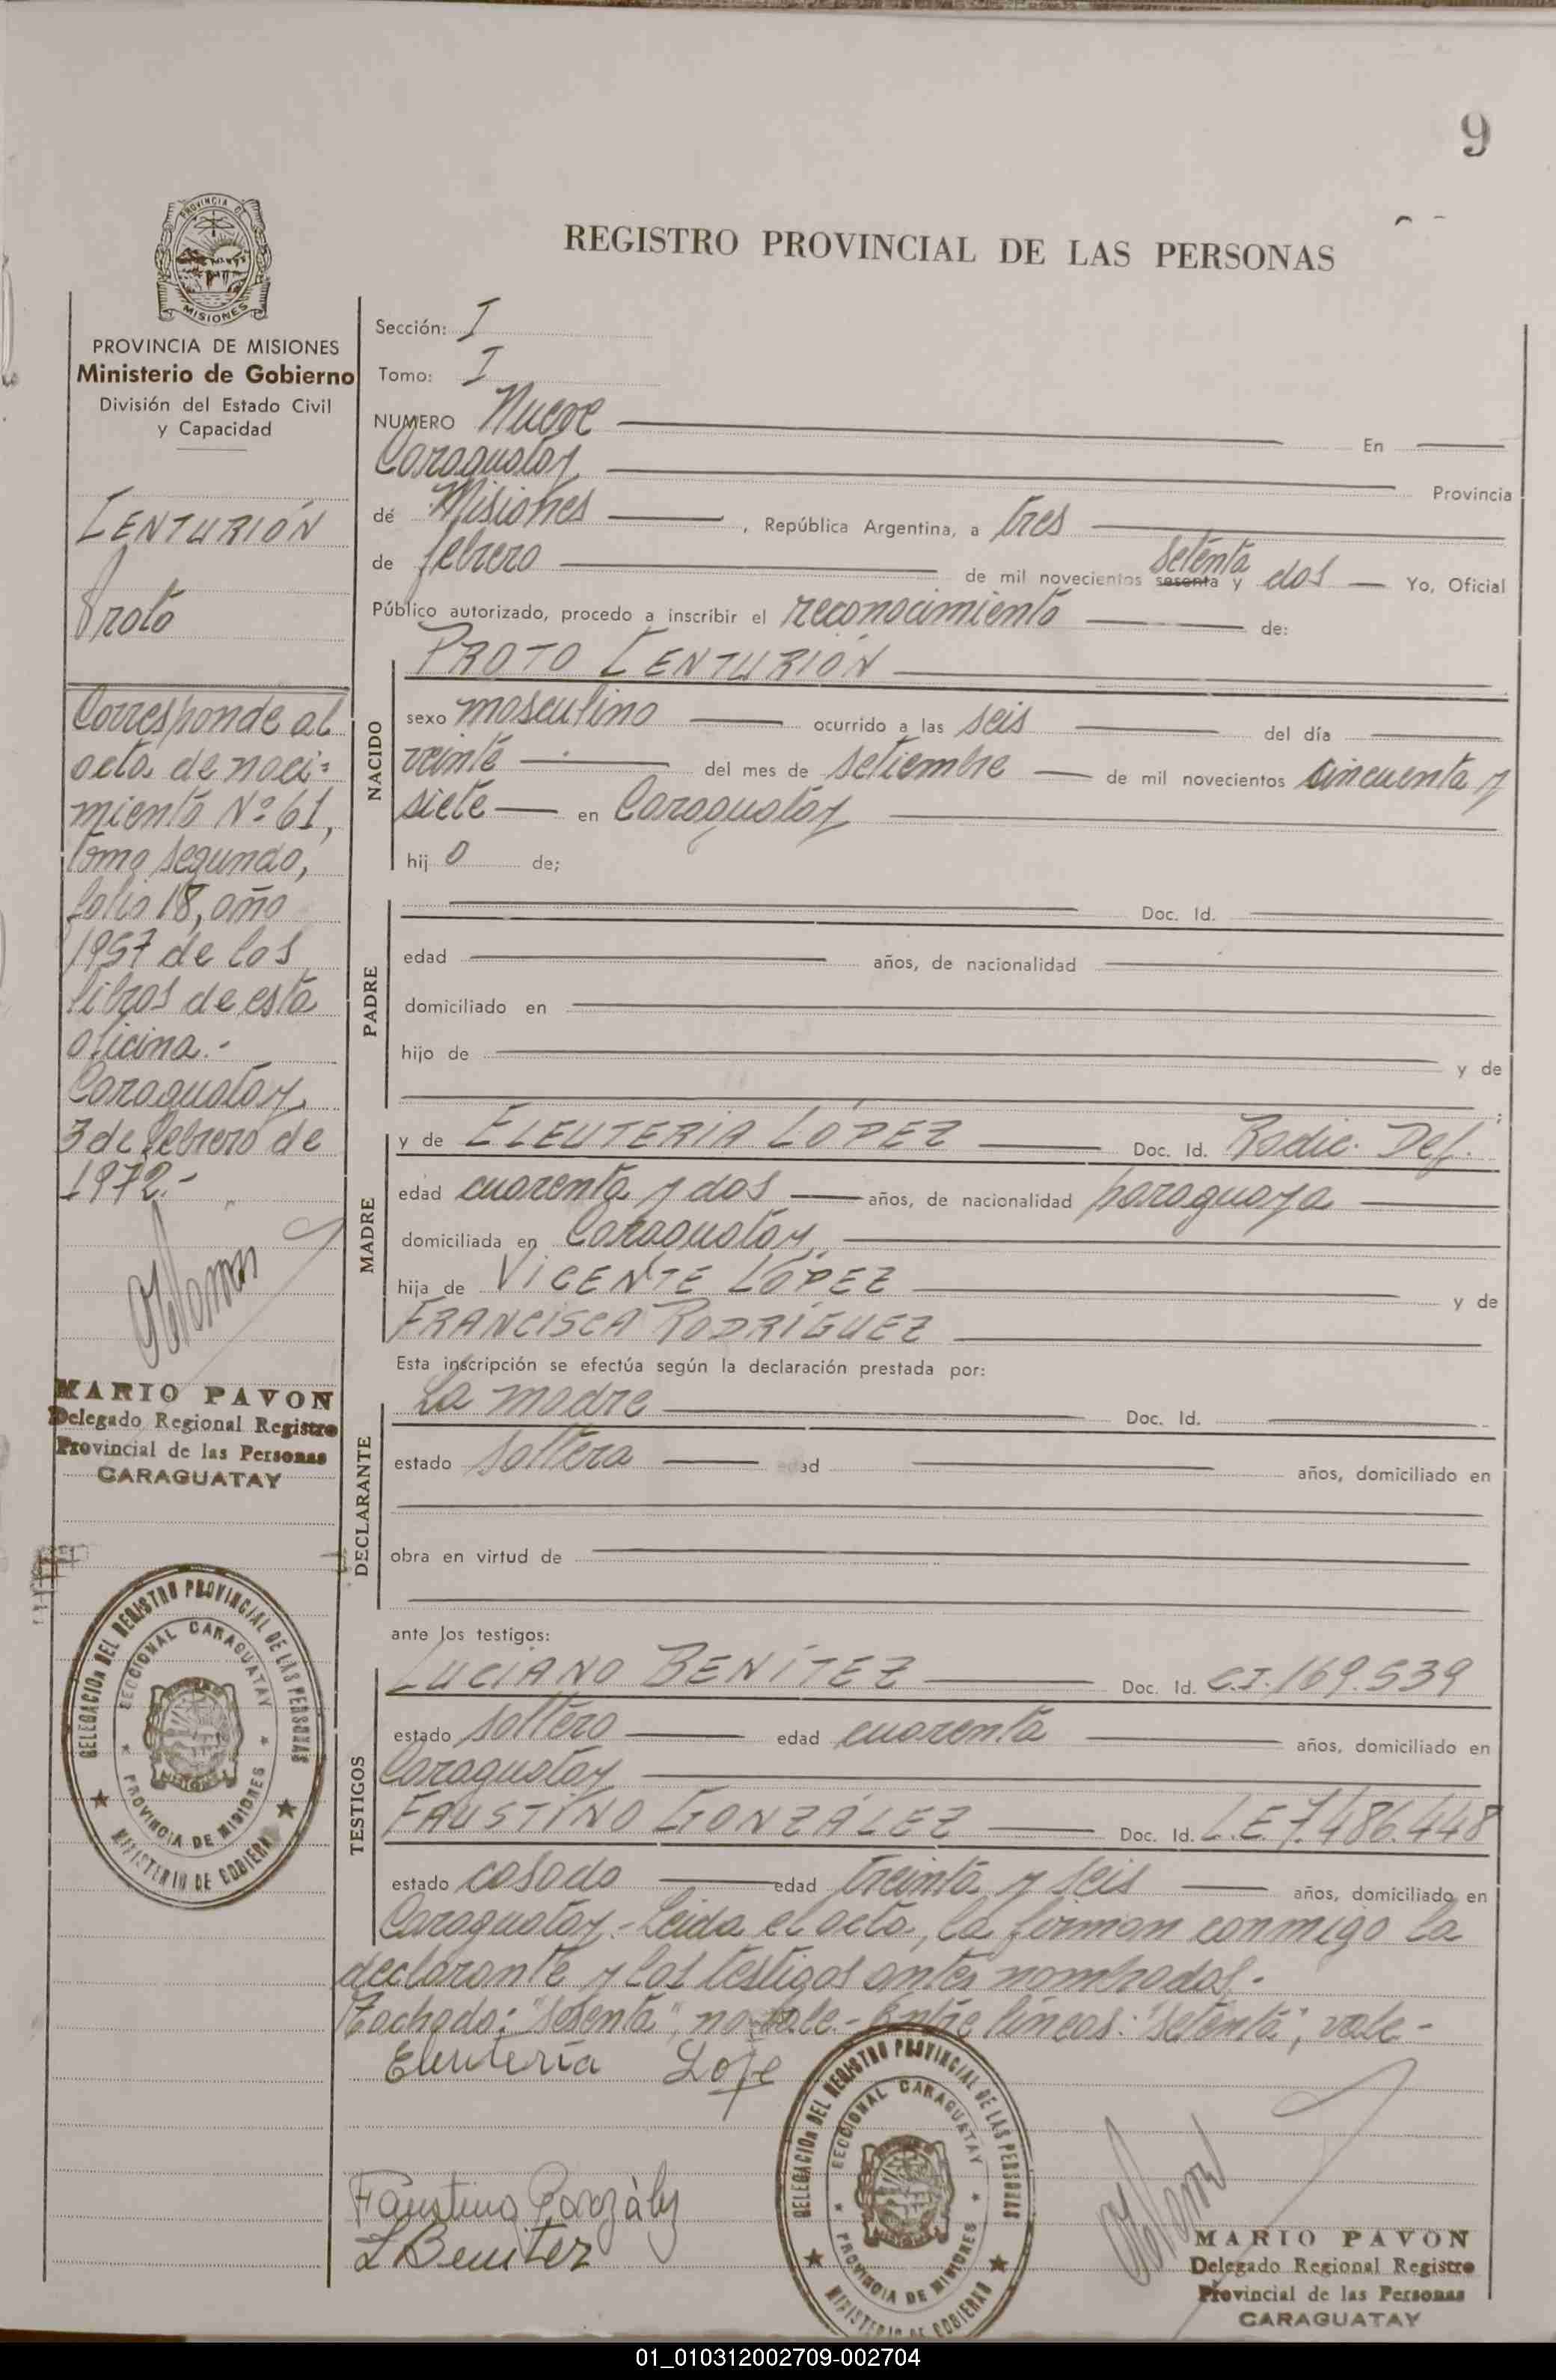 9
PROVINCIA DE
MISIONES
REGISTRO PROVINCIAL DE LAS PERSONAS
PROVINCIA DE MISIONES
Ministerio de Gobierno
División del Estado Civil
y Capacidad
CENTURIÓN
Proto
Corresponde al
acta de naci=
miento Nº 61,
tomo segundo,
folio 18, año
1957 de los
libros de esta
oficina.-
Caraguatay,
3 de febrero de
1972.-
MARIO PAVON
Delegado Regional Registro
Provincial de las Personas
CARAGUATAY
DELEGACION DEL REGISTRO PROVINCIAL DE LAS PERSONAS
SECCIONAL CARAGUATAY
PROVINCIA DE MISIONES
MINISTERIO DE GOBIERNO
Sección: I
Tomo: I
NUMERO Nueve En
Caraguatay, Provincia
de Misiones, República Argentina, a tres
de febrero de mil novecientos sesenta y setenta dos Yo, Oficial
Público autorizado, procedo a inscribir el reconocimiento de:
PROTO CENTURIÓN
NACIDO
sexo masculino ocurrido a las seis del día
veinte del mes de setiembre de mil novecientos cincuenta y
siete en Caraguatay
hijo de;
PADRE
Doc. Id.
edad años, de nacionalidad
domiciliado en
hijo de y de
;
MADRE
y de ELEUTERIA LÓPEZ Doc. Id. Radic. Def.
edad cuarenta y dos años, de nacionalidad paraguaya
domiciliada en Caraguatay,
hija de VICENTE LÓPEZ y de
FRANCISCA RODRÍGUEZ
Esta inscripción se efectúa según la declaración prestada por:
DECLARANTE
La madre Doc. Id.
estado soltera edad años, domiciliado en
obra en virtud de
ante los testigos:
TESTIGOS
LUCIANO BENÍTEZ Doc. Id. C.I. 169.539
estado soltero edad cuarenta años, domiciliado en
Caraguatay
FAUSTINO GONZÁLEZ Doc. Id. L.E. 7.486.448
estado casado edad treinta y seis años, domiciliado en
Caraguatay.- Leida el acta, la firman conmigo la
declarante y los testigos antes nombrados.-
Tachado: "sesenta", no vale.- Entre líneas: "setenta", vale-
Eleuteria Lope
Faustino González
L Benitez
DELEGACION DEL REGISTRO PROVINCIAL DE LAS PERSONAS
SECCIONAL CARAGUATAY
PROVINCIA DE MISIONES
MINISTERIO DE GOBIERNO
MARIO PAVON
Delegado Regional Registro
Provincial de las Personas
CARAGUATAY
01_010312002709-002704